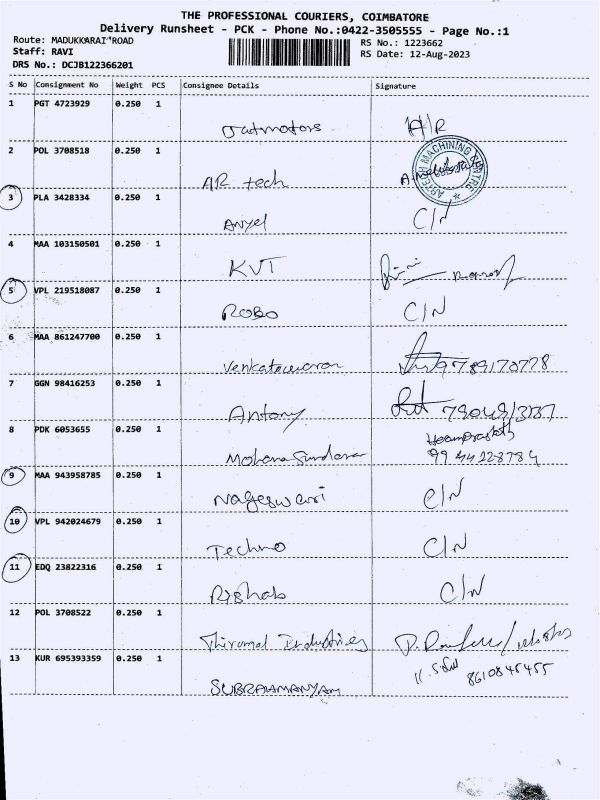 THE PROFESSIONAL COURIERS, COIMBATORE
Delivery Runsheet - PCK - Phone No.:0422-3505555 - Page No.:1
Route: MADUKKARAI ROAD
RS No.: 1223662
Staff: RAVI
RS Date: 12-Aug-2023
DRS No.: DCJB122366201
S No Consignment No Weight PCS Consignee Details Signature
1 PGT 4723929 0.250 1
A/R
2 POL 3708518 0.250 1
AR tech
MACHINING CENTRE
3 PLA 3428334 0.250 1
C/N
4 MAA 103150501 0.250 1
KVT
5 VPL 219518087 0.250 1
ROBO C/N
6 MAA 861247700 0.250 1
9789170778
7 GGN 98416253 0.250 1
Antony
8 PDK 6053655 0.250 1
Mohana Sundaram
9 MAA 943958785 0.250 1
Nageswari C/N
10 VPL 942024679 0.250 1
Techno C/N
11 EDQ 23822316 0.250 1
Rishab C/N
12 POL 3708522 0.250 1
Thirumal Industries
13 KUR 695393359 0.250 1
8610845455
SUBRAHMANYAM